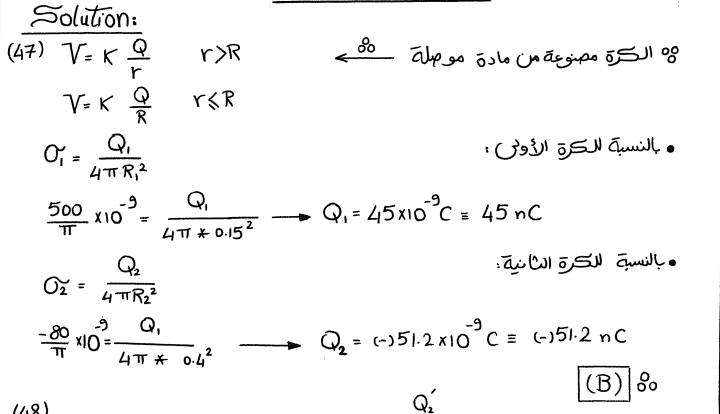 Solution:
(47) V = K Q/r r>R ⟵ ∴ الكرة مصنوعة من مادة موصلة ∵
V = K Q/R r⩽R
σ₁ = Q₁/4πR₁² • بالنسبة للكرة الأولى:
500/π ×10⁻⁹ = Q₁/4π * 0.15² ⟶ Q₁ = 45×10⁻⁹ C ≡ 45 nC
σ₂ = Q₂/4πR₂² • بالنسبة للكرة الثانية:
-80/π ×10⁻⁹ = Q₁/4π * 0.4² ⟶ Q₂ = (-)51.2×10⁻⁹ C ≡ (-)51.2 nC
(B) ∴
(48) Q₂′